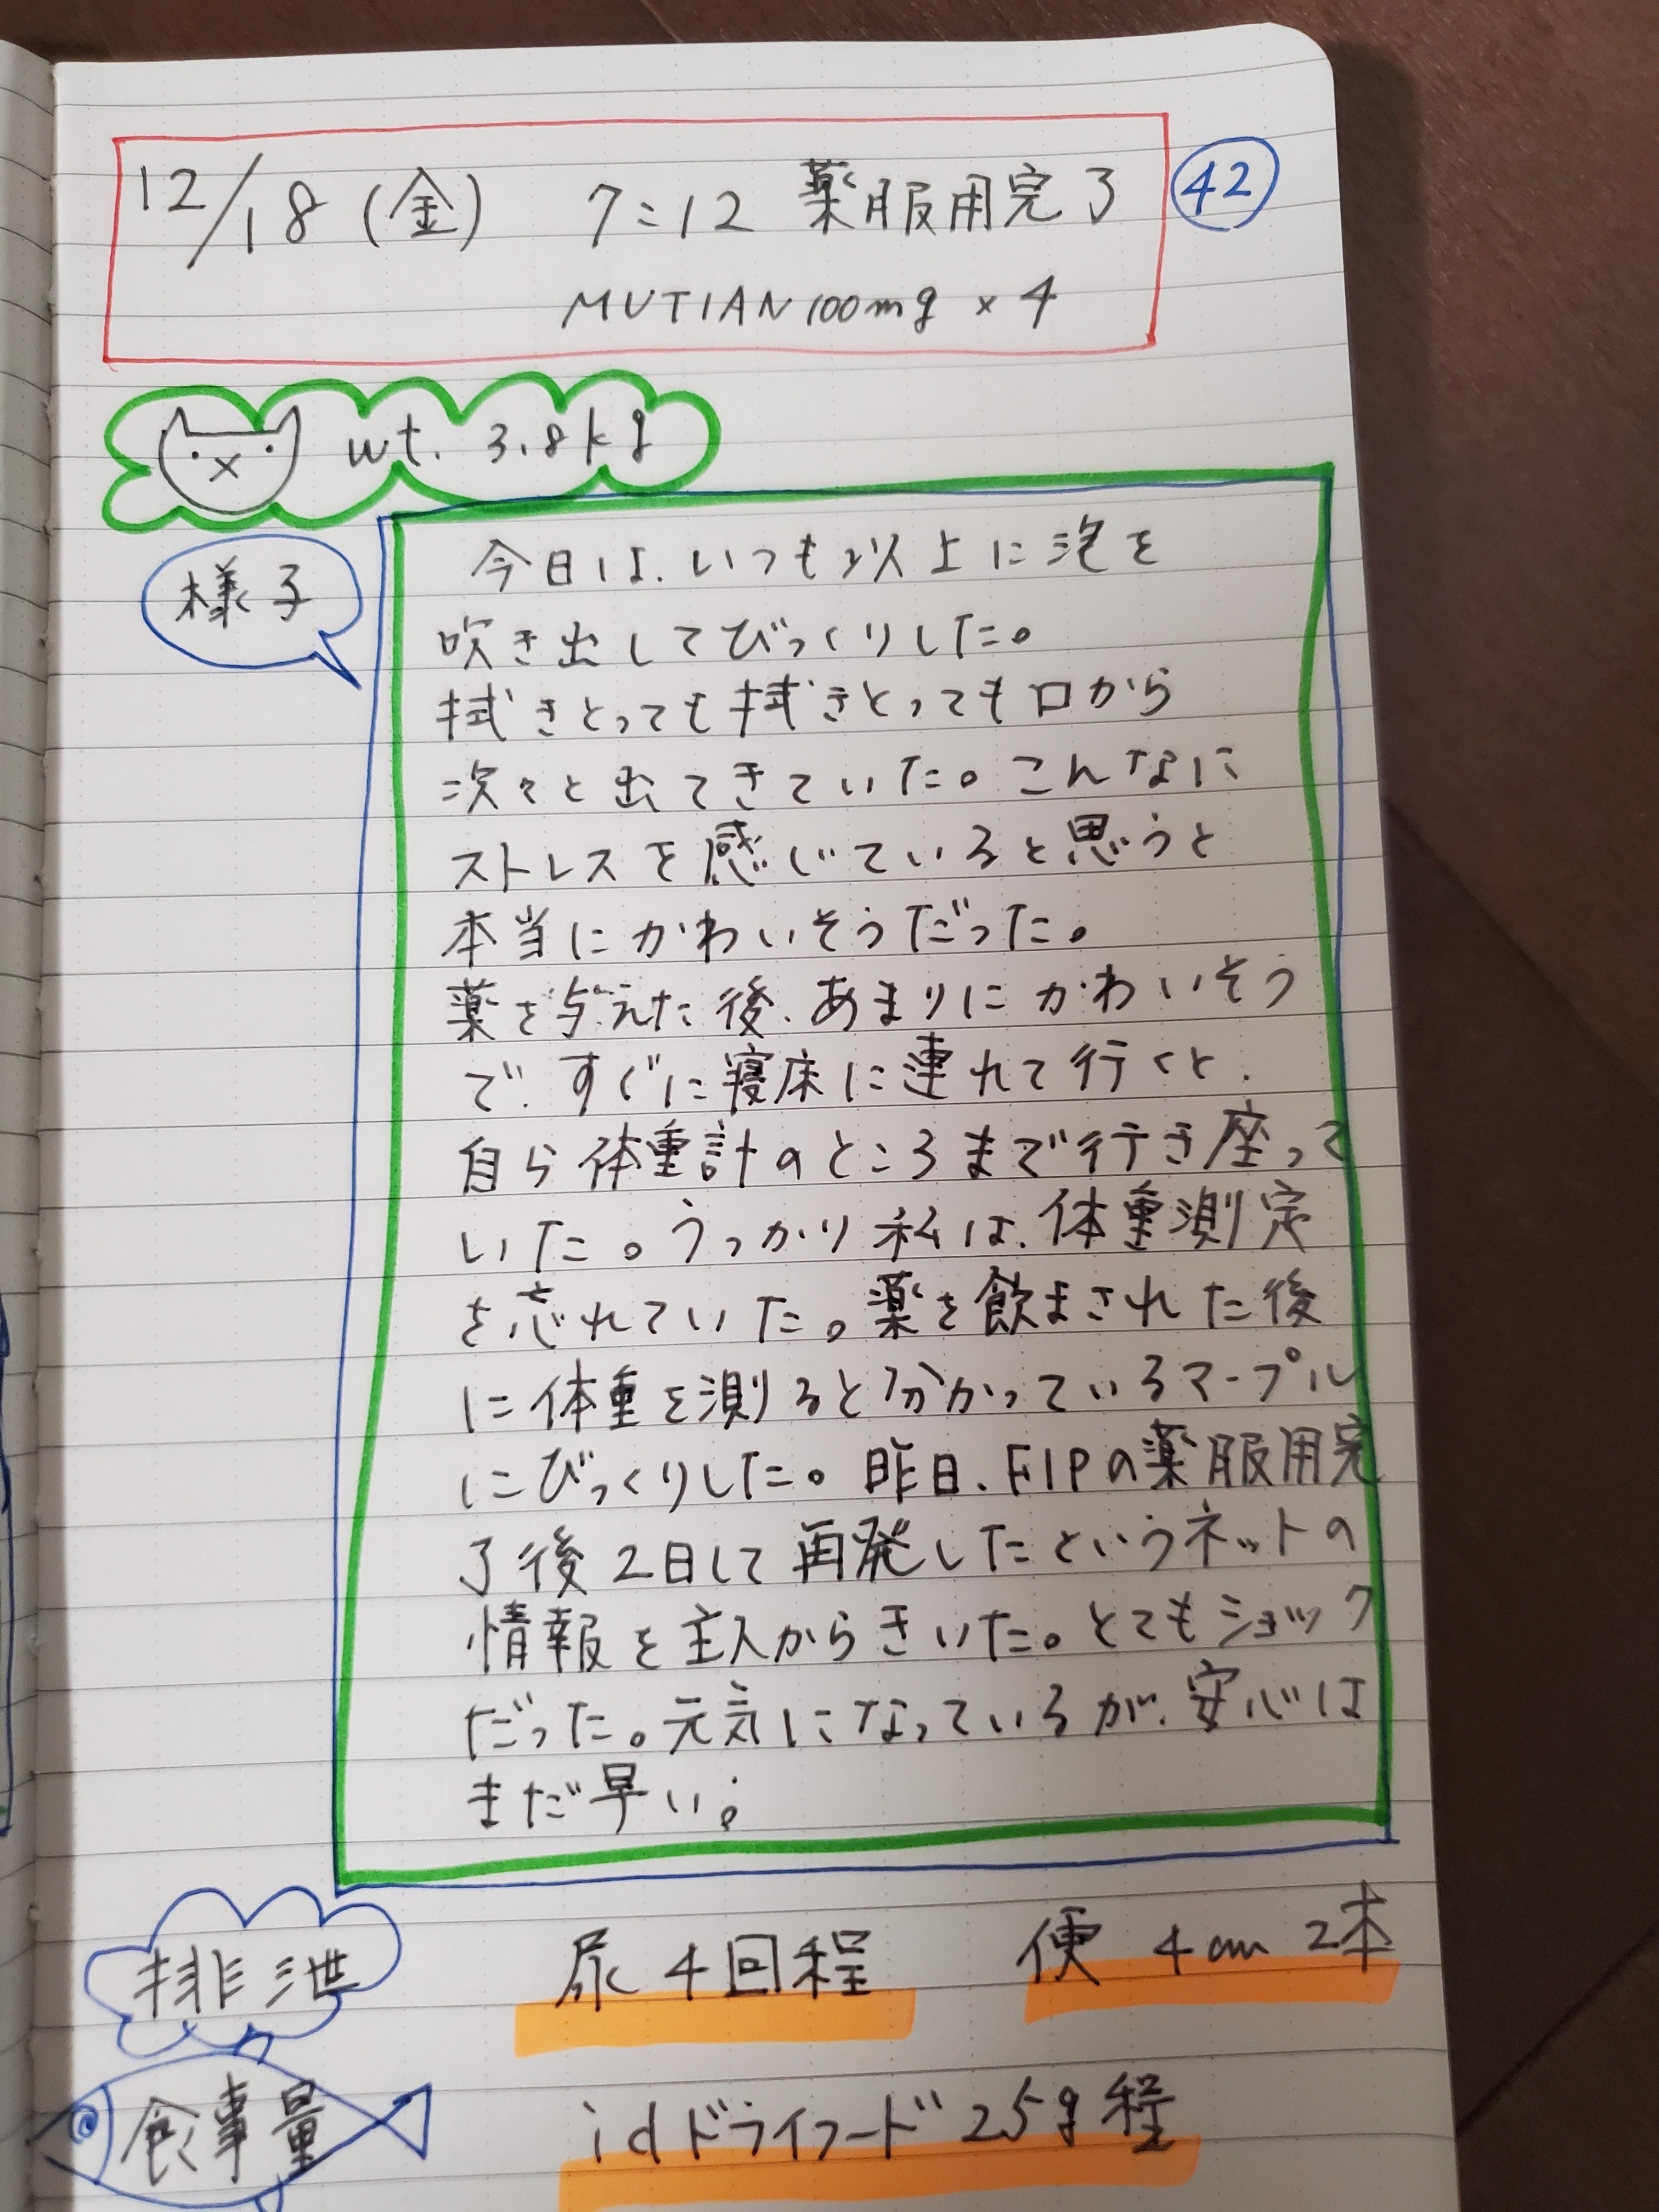 12/18(金) 7:12 薬服用完了
42
MUTIAN 100mg × 4
wt. 3.8kg
様子
今日は、いつも以上に泡を
吹き出してびっくりした。
拭きとっても拭きとっても口から
次々と出てきていた。こんなに
ストレスを感じていると思うと
本当にかわいそうだった。
薬を与えた後、あまりにかわいそう
で、すぐに寝床に連れて行くと、
自ら体重計のところまで行き座って
いた。うっかり私は、体重測定
を忘れていた。薬を飲まされた後
に体重を測ると分かっているマープル
にびっくりした。昨日、FIPの薬服用完
了後2日して再発したというネットの
情報を主人からきいた。とてもショック
だった。元気になっているが、安心は
まだ早い。
排泄 尿4回程 便 4cm 2本
食事量 idドライフード25g程